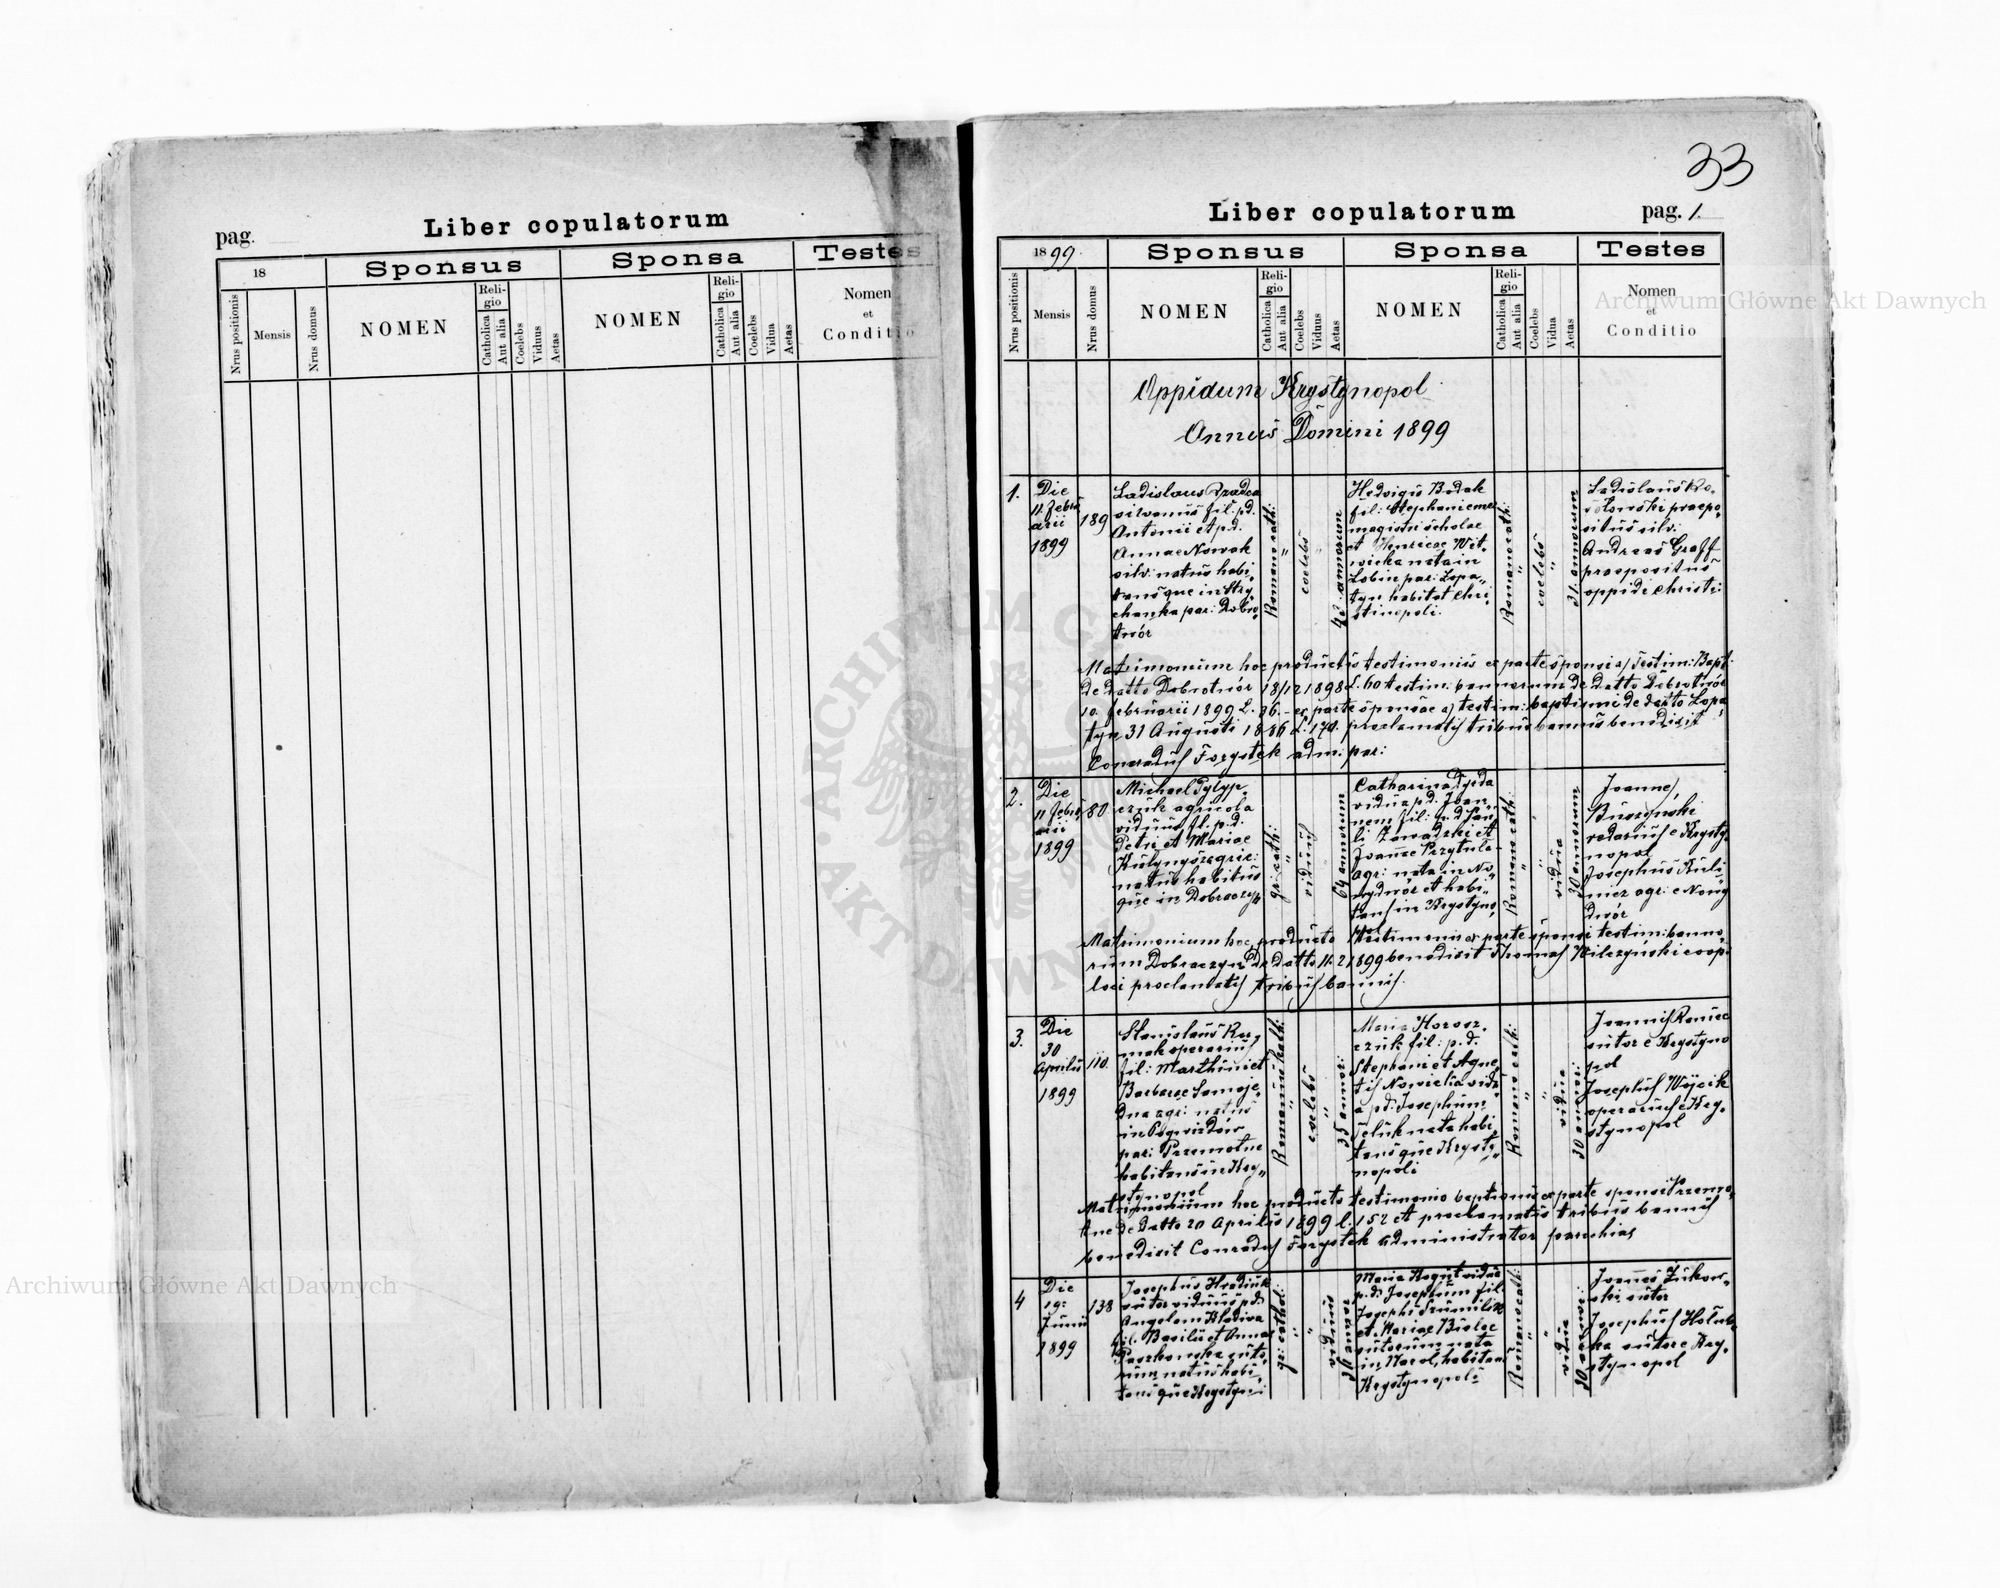 33
Liber copulatorum
pag.
18
Sponsus
Sponsa
Testes
Nrus positionis
Mensis
Nrus domus
NOMEN
Religio
Catholica
Aut alia
Coelebs
Viduus
Aetas
NOMEN
Religio
Catholica
Aut alia
Coelebs
Vidua
Aetas
Nomen
et
Conditio
Liber copulatorum
pag. 1.
1899.
Sponsus
Sponsa
Testes
Nrus positionis
Mensis
Nrus domus
NOMEN
Religio
Catholica
Aut alia
Coelebs
Viduus
Aetas
NOMEN
Religio
Catholica
Aut alia
Coelebs
Vidua
Aetas
Nomen
et
Conditio
Oppidum Krystynopol
Annus Domini 1899
1.
Die
11 Febru
arii
1899
189
Ladislaus
silvanus fil: p.d.
Antonii et p.d.
Annae Nowak
silv: natus habi
tansque in Stry
chanka par: Dobro
twór
Romano cath:
coelebs
42 annorum
Hedvigis Bodak
fil: Stephani emer
magistri scholae
et Henricae Wit
wicka nata in
Lobin par: Lopa
tyn habitat Chri
stinopoli.
Romano cath:
coelebs
31. annorum
Ladislaus Ro
praepo
situs silv:
Andreas Graff
praepositus
oppidi Christi:
Matrimonium hoc productis testimoniis ex parte sponsi a) Testim: Bapt:
de datto Dobrotwór 18/12 1898 L. 60 testim. bannorum de datto Dobrotwór
10. februarii 1899 L. 36. – ex parte sponsae a) testim: baptismi de datto Lopa
tyn 31 Augusti 1886 L. 170. proclamatis tribus bannis benedixit
Conradus Forystek adm: par:
2.
Die
11 Febru
arii
1899
80
Michael Pylyp
czuk agricola
viduus fil. p.d.
Petri et Mariae
agric:
natus habitus
que in Dobraczyn
gr: cath:
viduus
64 annorum
Catharina Dyda
vidua p.d. Joan
nem fil: p.d. Pau
li Zawadzki et
Joannae Przytula
agr: nata in No
wydwór et habi
tans in Krystyno
pol
Romano cath:
vidua
50 annorum
Joannes
Buczyński
e Krysty
nopol
Josephus Kuli
nicz agr: e Nowy
dwór
Matrimonium hoc producto testimonio ex parte sponsi testim: banno
rum Dobraczyn de datto 11. 2 1899 benedixit Thomas Wilczyński coop:
loci proclamatis tribus bannis.
3.
Die
30
Aprilis
1899
110.
Stanislaus Kar
mak operarius
fil: Marthini et
Barbarae Samoje
dna agr: natus
in Pogwizdów
par: Przemotne
habitans in Kry
stynopol
Romano kath:
coelebs
35 annor:
Maria Horosz
czuk fil: p.d.
Stephani et Agne
tis vidu
a p.d: Josephum
nata habi
tansque Krysty
nopoli
Romano cath:
vidua
30 annor:
Joannes Raniec
sutor e Krystyno
pol
Josephus Wójcik
operarius e Kry
stynopol
Matrimonium hoc producto testimonio baptismi ex parte sponsi Przemo
tne de datto 20 Aprilis 1899 L. 152 et proclamatis tribus bannis
benedixit Conradus Forystek administrator parochiae
4
Die
19:
Junii
1899
138
Josephus
sutor viduus p.d.
Angelam
fil. Basilii et Annae
Paszkowska suto
rum natus habi
tansque Krystyni
gr: cathol:
viduus
annor:
Maria Kogut vidua
p.d: Josephum fil:
Josephi
et Mariae Bialec
sutorum nata
in Narol, habitans
Krystynopoli
Romano cath:
vidua
50 annor:
Joannes Zukow
ski sutor
Josephus Holub
ka sutor e Kry
stynopol
Archiwum Główne Akt Dawnych
Archiwum Główne Akt Dawnych